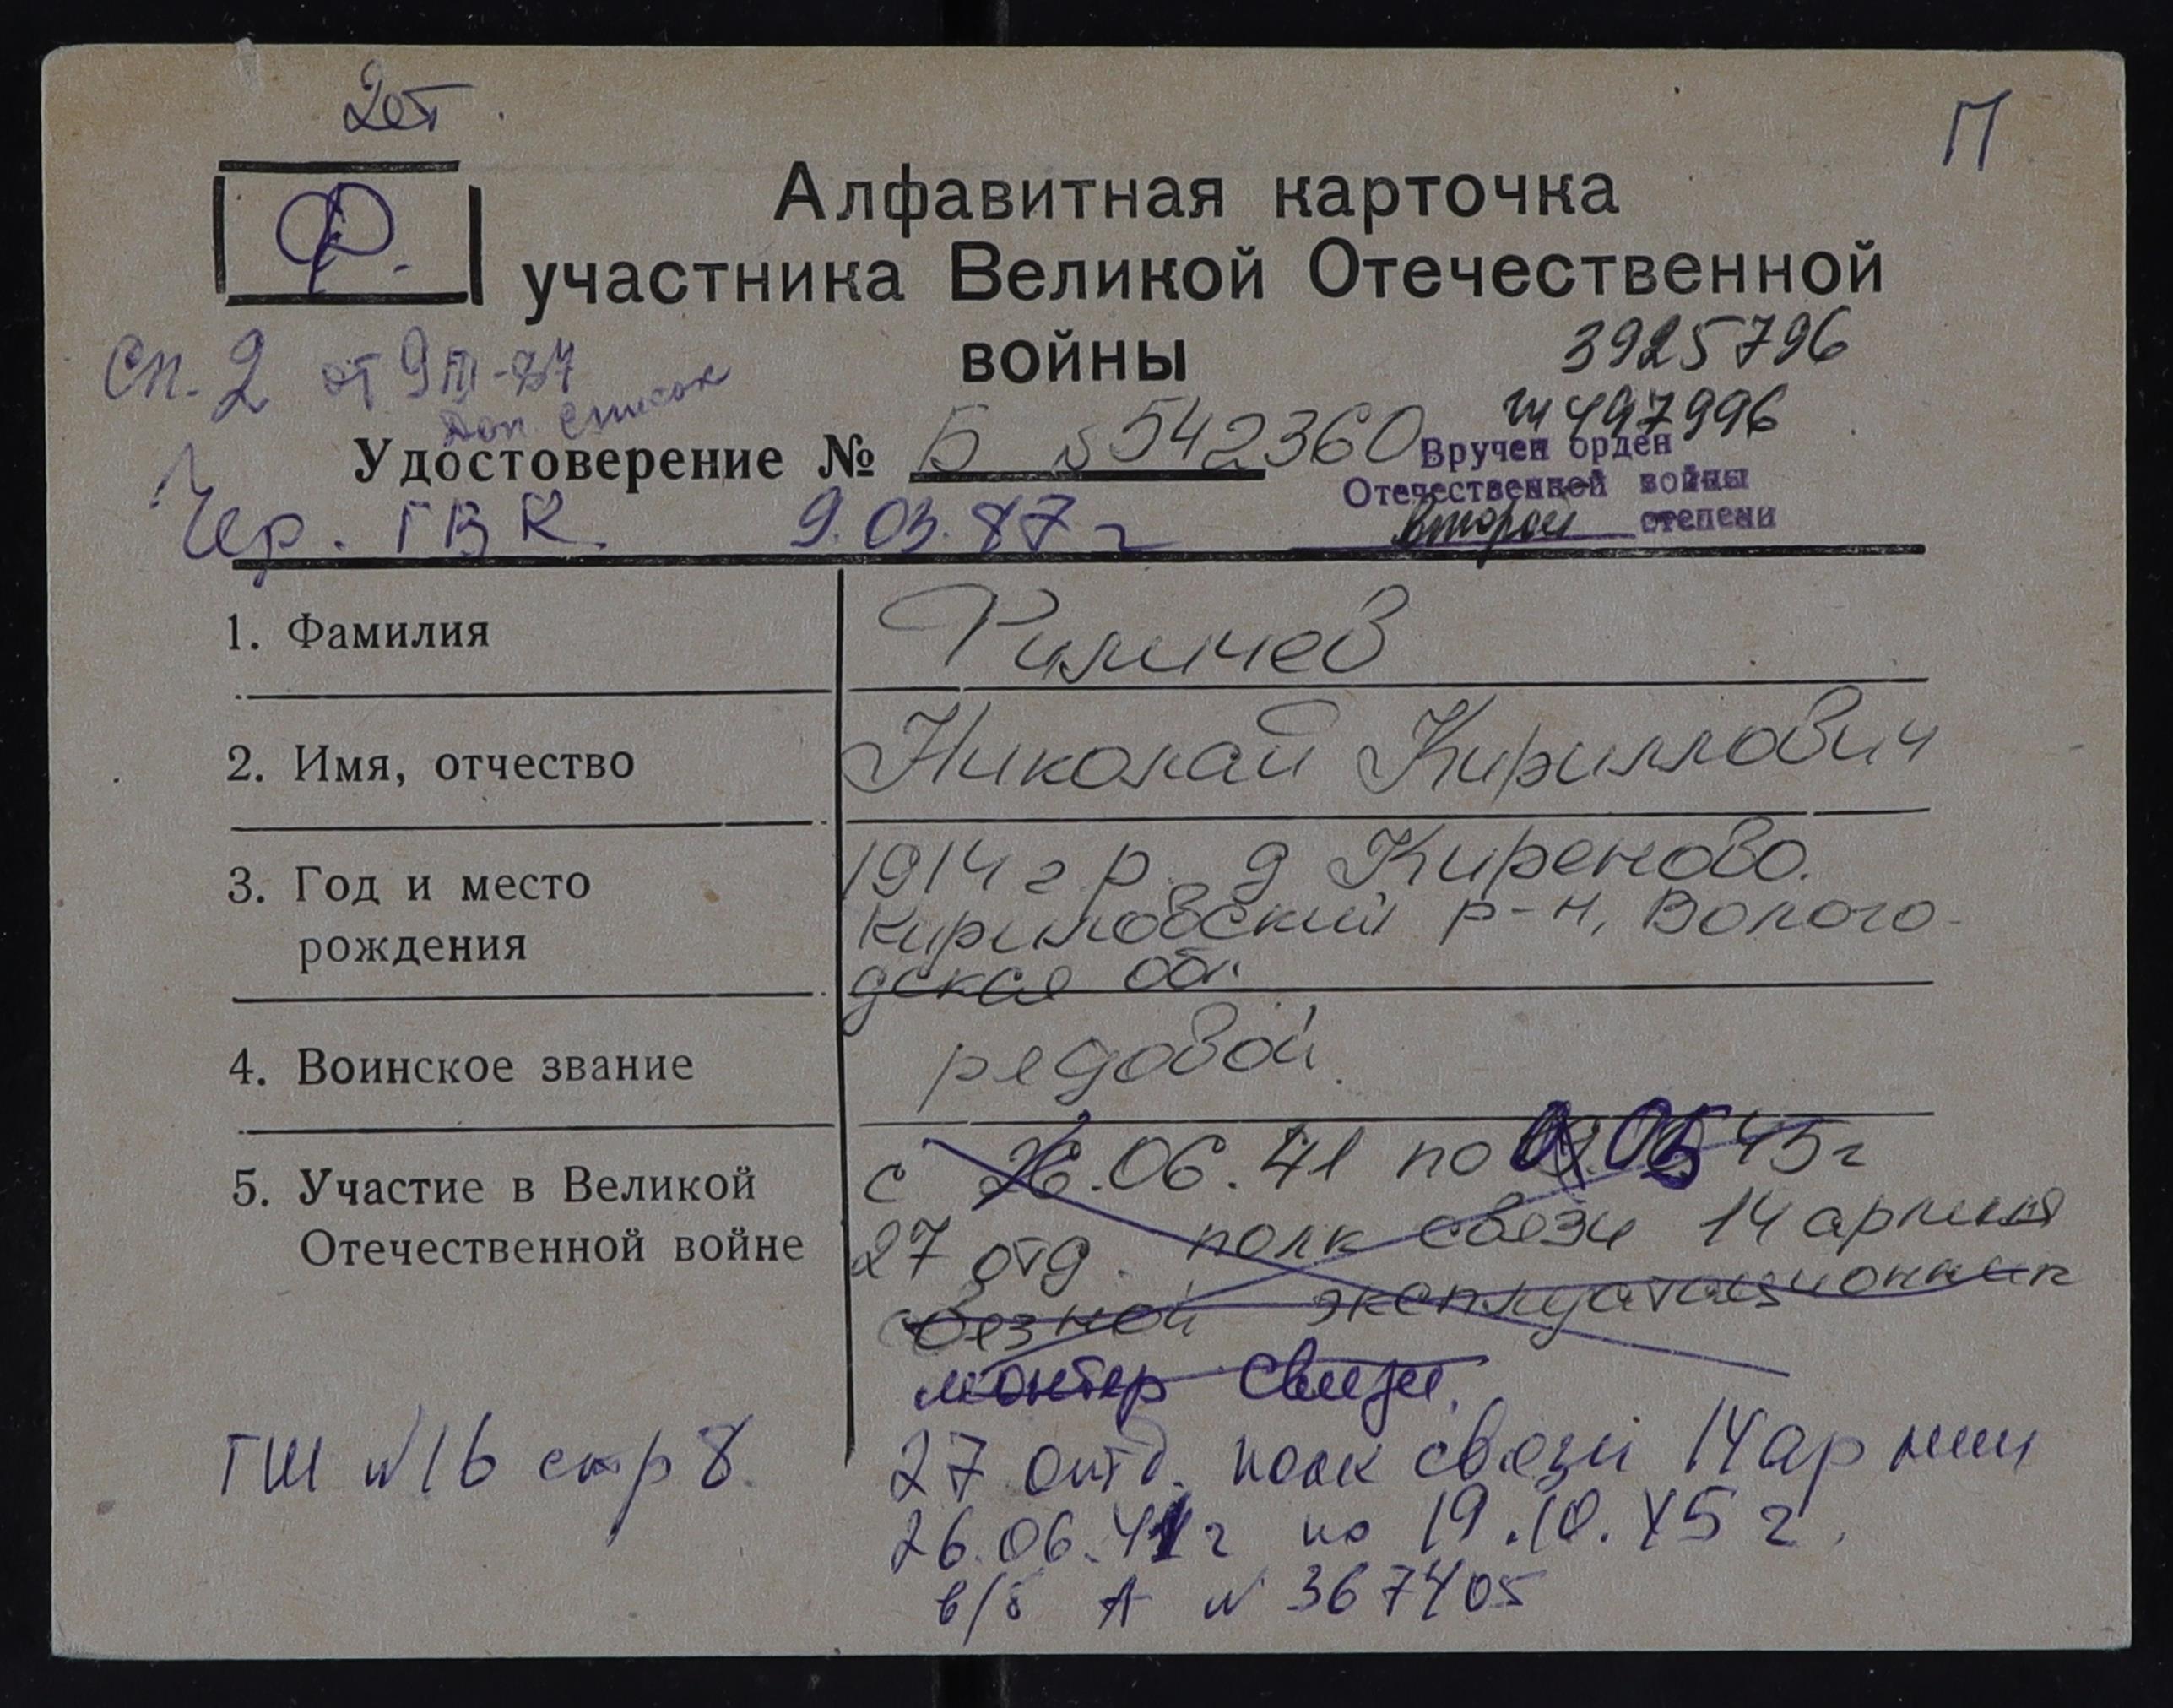 2от.
П
Ф.
Алфавитная карточка
участника Великой Отечественной
войны
3925796
Сп. 2 от 9 III-87
Доп список
497996
Удостоверение № Б N 542360
Вручен орден
Отечественной войны
второй степени
Чер. ГВК. 9.03.87г
1. Фамилия
Филичев
2. Имя, отчество
Николай Кириллович
3. Год и место
рождения
1914 г.р. д Киреново.
Кириловский р-н, Волого-
дская обл.
4. Воинское звание
рядовой.
5. Участие в Великой
Отечественной войне
с 26.06.41 по 05 45г
27 отд. полк связи 14 армия
связной эксплуатационник
монтер связи.
ГШ N16 стр 8.
27 отд. полк связи 14 армии
26.06.41г по 19.10.45г.
в/б А N 367405